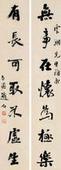 無事在懷為極樂
有長可取不虛生